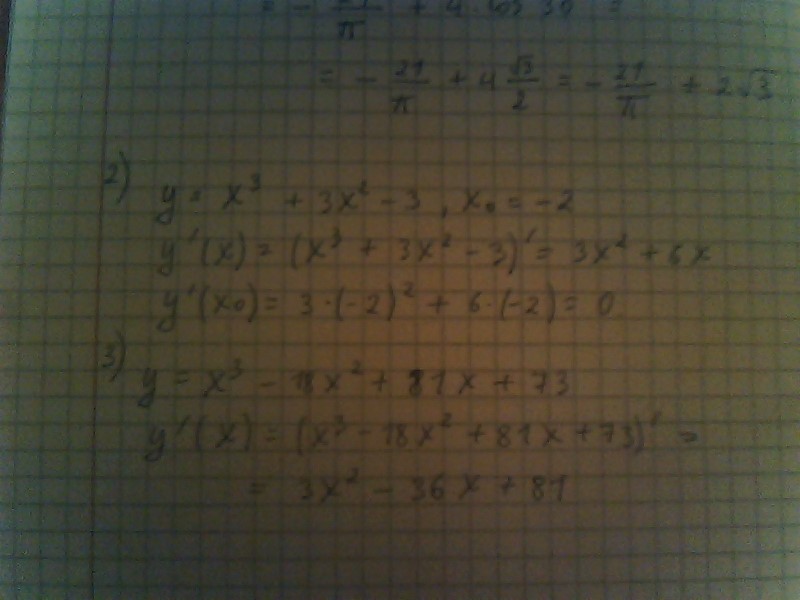 = - 21/π + 4 cos 30 =
= - 21/π + 4 √3/2 = - 21/π + 2√3
2)
y = x³ + 3x² - 3, x₀ = -2
y'(x) = (x³ + 3x² - 3)' = 3x² + 6x
y'(x₀) = 3·(-2)² + 6·(-2) = 0
3)
y = x³ - 18x² + 81x + 73
y'(x) = (x³ - 18x² + 81x + 73)' =
= 3x² - 36x + 81